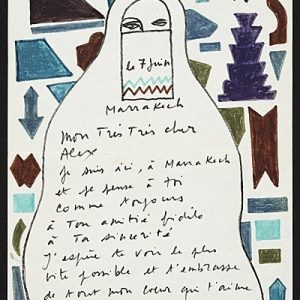 le 7 Juin
Marrakech
mon Très Très cher
Alex.
Je suis ici, à Marrakech
et je pense à toi
comme toujours
à Ton amitié fidèle
à Ta sincerité
J'espère te voir le plus
vite possible et t'embrasse
de tout mon cœur qui t'aime